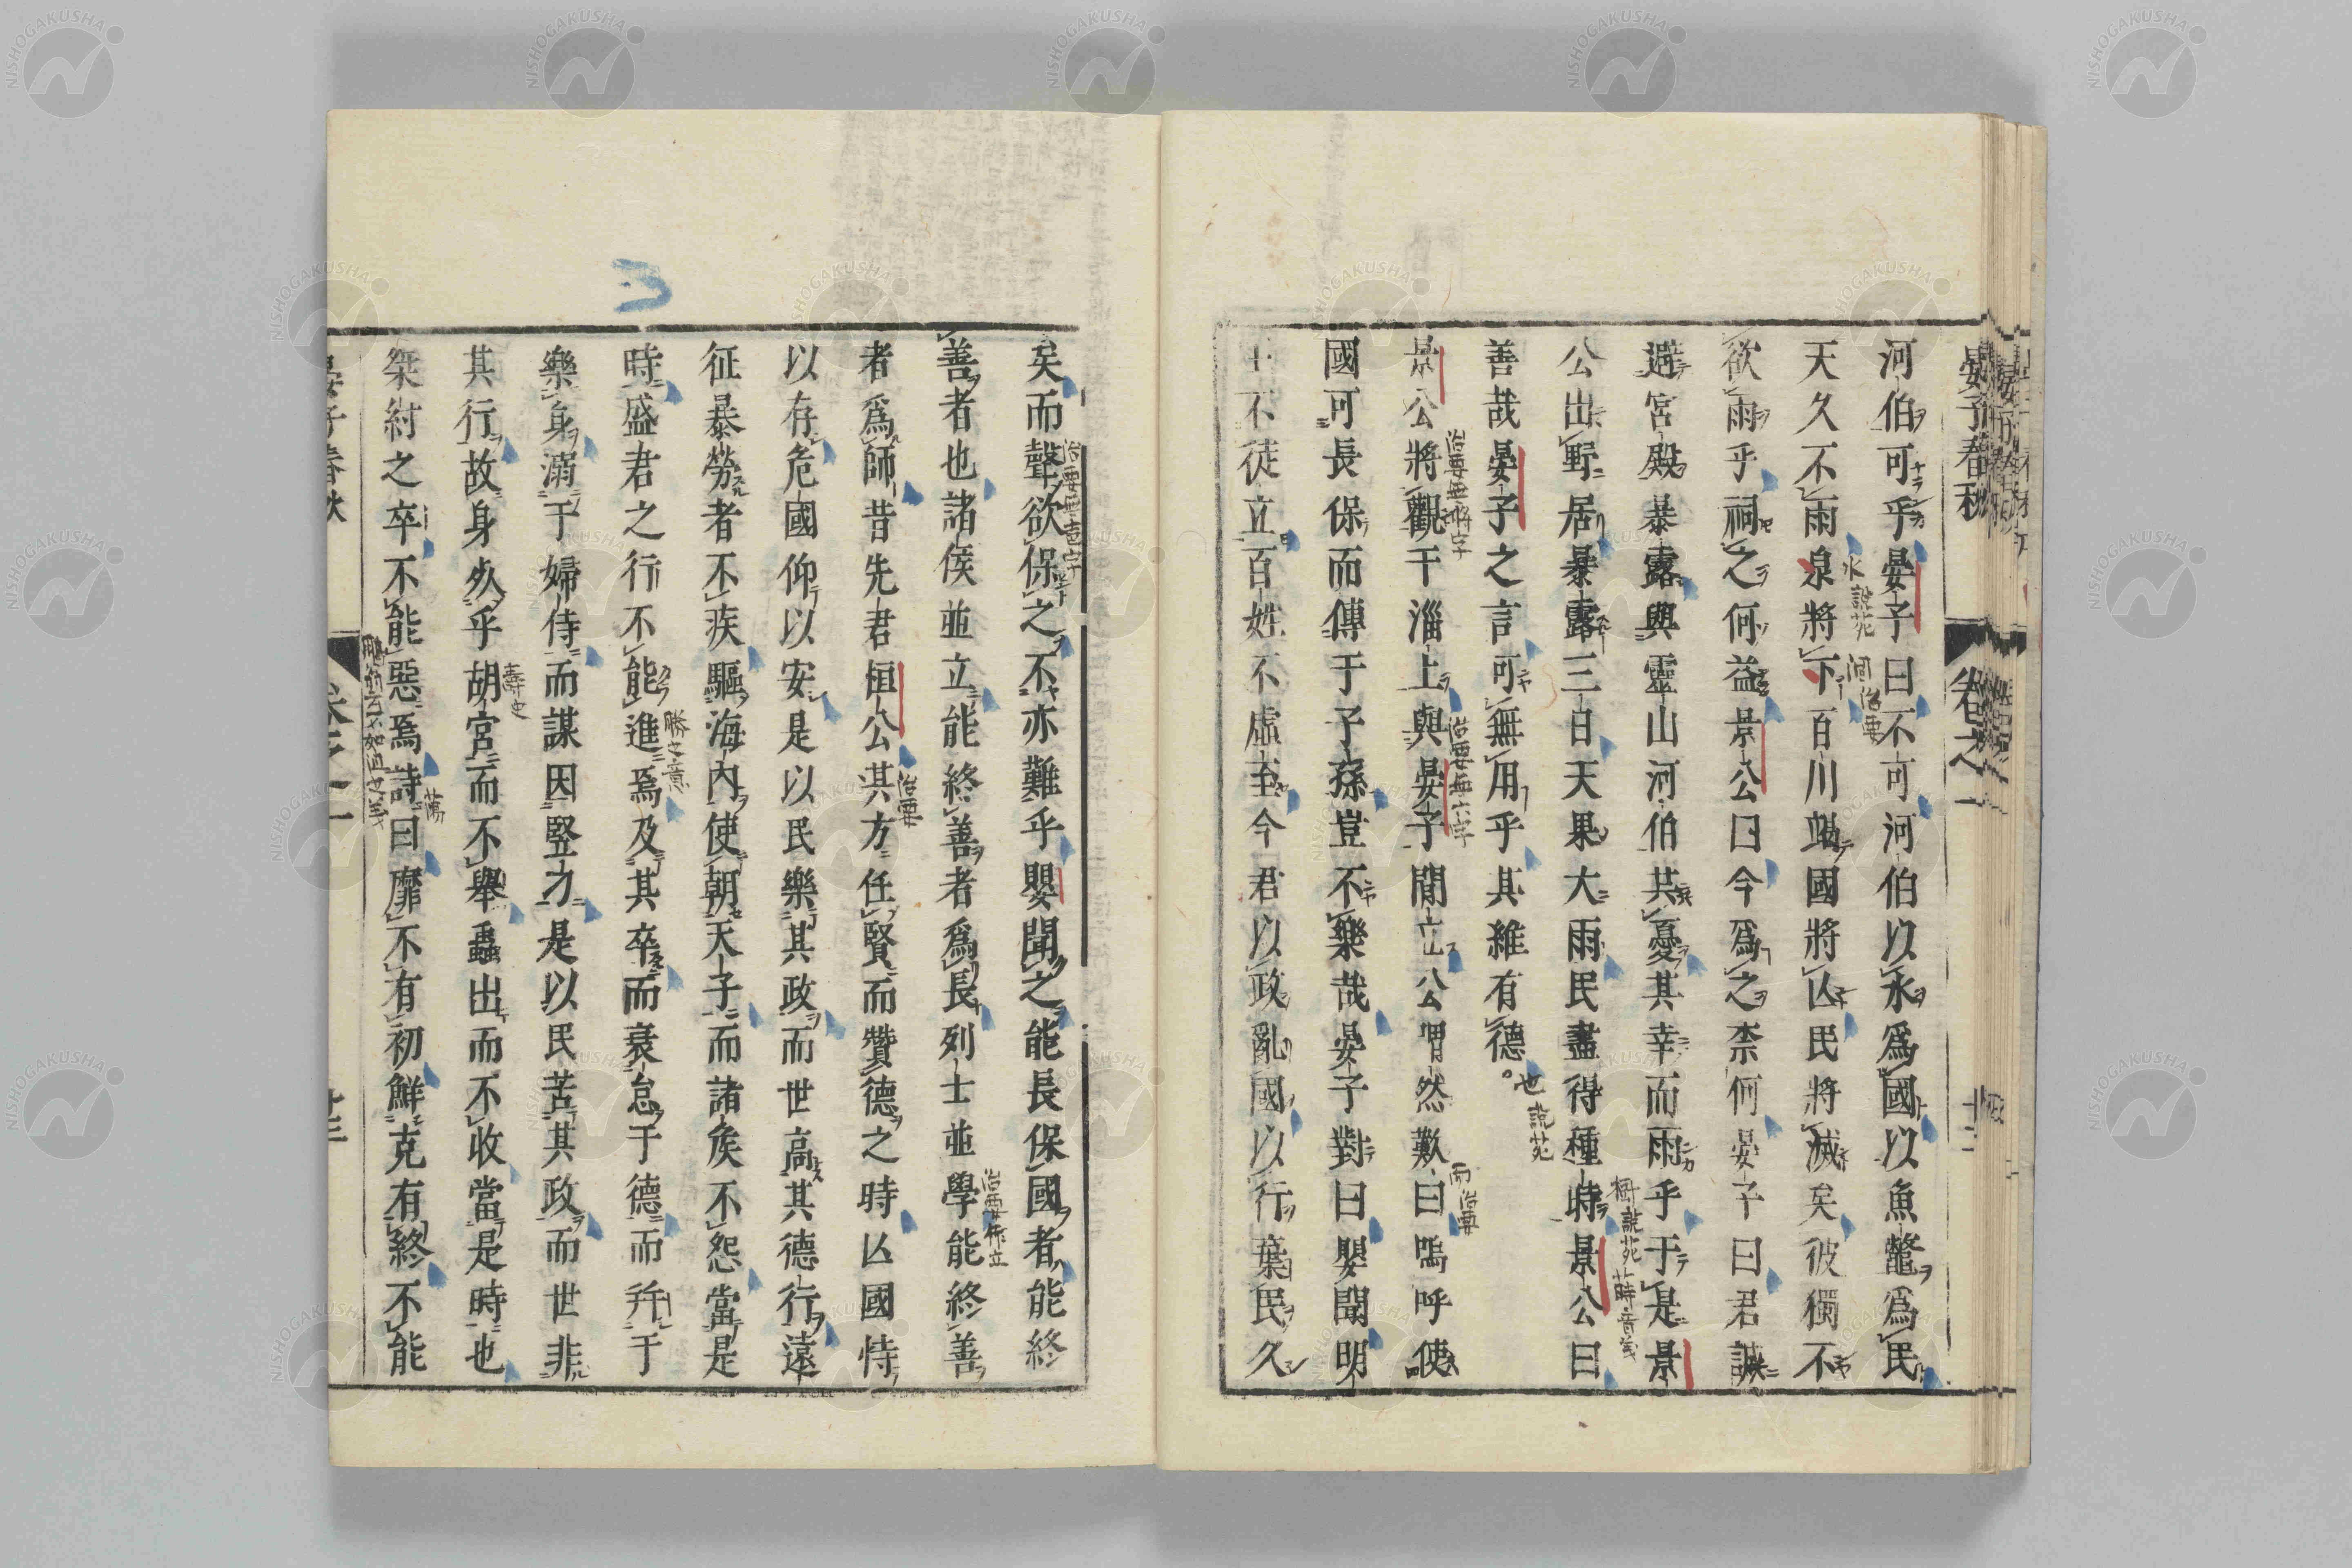 晏子春秋 卷之一 十二
河伯可乎晏子曰不可河伯以水爲國以魚鼈爲民
天久不雨泉將下百川竭國將亾民將滅矣彼獨不
欲雨乎祠之何益景公曰今爲之柰何晏子曰君誠
避宮殿暴露與靈山河伯共憂其幸而雨乎于是景
公出野居暴露三日天果大雨民盡得種時景公曰
善哉晏子之言可無用乎其維有德
景公將觀于淄上與晏子閒立公喟然歎曰嗚呼使
國可長保而傳于子孫豈不樂哉晏子對曰嬰聞明
王不徒立百姓不虛至今君以政亂國以行棄民久
水說苑
涸治要
樹說苑
蒔音義
也說苑
治要無將字
治要無六字
而治要
矣而聲欲保之不亦難乎嬰聞之能長保國者能終
善者也諸侯並立能終善者爲長列士並學能終善
者爲師昔先君桓公其方任賢而贊德之時亾國恃
以存危國仰以安是以民樂其政而世高其德行遠
征暴勞者不疾驅海內使朝天子而諸矦不怨當是
時盛君之行不能進焉及其卒而衰怠于德而幷于
樂身溺于婦侍而謀因豎刁是以民苦其政而世非
其行故身死乎胡宮而不舉蟲出而不收當是時也
桀紂之卒不能惡焉詩曰靡不有初鮮克有終不能
治要作立
治要
勝之意
壽也
蕩
晏子春秋 卷之一 十三
NISHOGAKUSHA